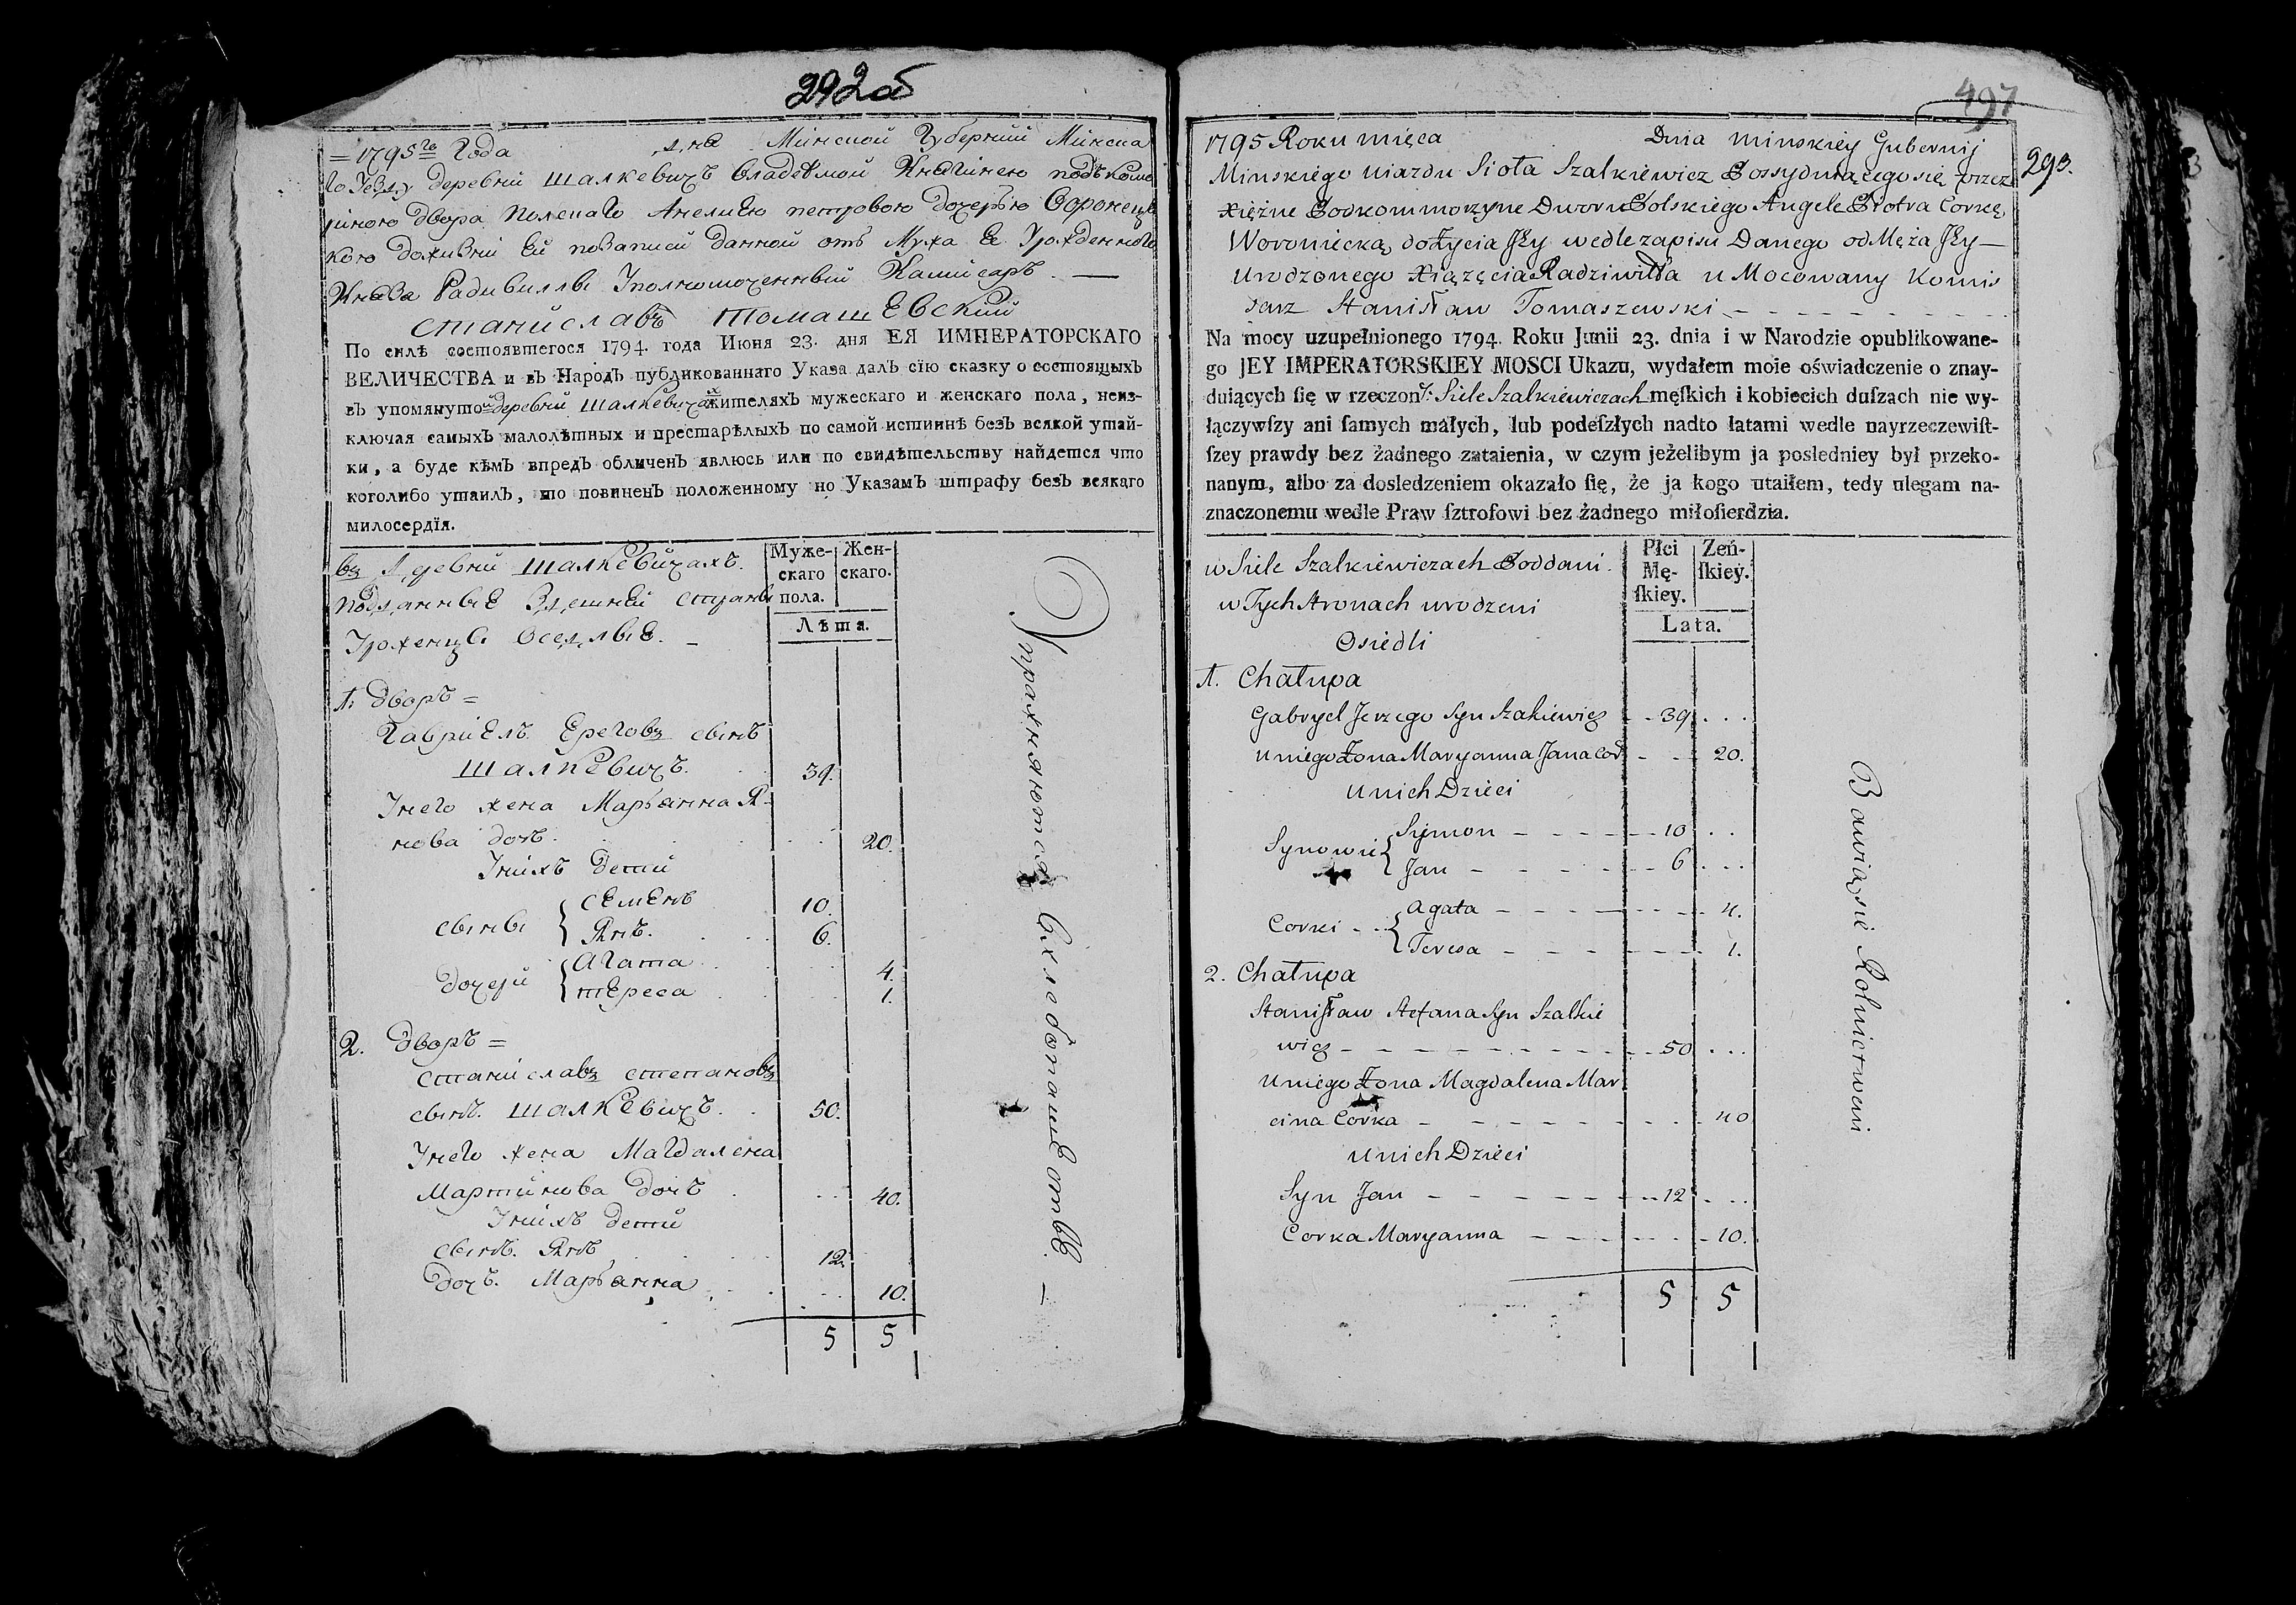 292об
=1795го Года дня Минской Губернии Минска
го Уезду деревни Шалкевичъ владеемой Княгинею подъкомо
рiною двора полскаго Анелиею петровою дочерью Воронец
кою дожизни Ей позаписи данной отъ Мужа Ее Урожденного
Князя Радивиллы Уполномоченный Камисаръ —
Станиславъ Томашевский
По силѣ состоявшегося 1794. года Июня 23. дня ЕЯ ИМПЕРАТОРСКАГО
ВЕЛИЧЕСТВА и въ Народъ публикованнаго Указа далъ сїю сказку о состоящыхъ
въ упомянутой деревни Шалкевичахъ жителяхъ мужескаго и женскаго пола, неиз-
ключая самыхъ малолѣтныхъ и престарѣлыхъ по самой истиннѣ безъ всякой утай-
ки, а буде кѣмъ впредъ обличенъ явлюсь или по свидѣтельству найдется что
коголибо утаилъ, то повиненъ положенному по Указамъ штрафу безъ всякаго
милосердїя.
въ Деревни Шалкевичахъ.
подданные Здешней страны
Уроженцы Оседлые. —
Муже- Жен-
скаго скаго.
пола.
Лѣта.
1. Дворъ =
Гавриелъ Ереговъ сынъ
Шалкевичъ. 39.
Унего жена Марьянна Я-
нова дочь. 20.
Унихъ дети
сыны { Семенъ 10.
Янъ. 6.
дочери { Агата 4.
Тереса 1.
2. Дворъ =
Станиславъ Степановъ
сынъ. Шалкевичъ. 50.
Унего жена Магдалена
Мартинова дочь 40.
Унихъ дети
сынъ. Янъ 12.
дочь. Марьянна 10.
5 5
Упражняются в хлебопашестве. —
497
293.
1795 Roku mięca Dnia Minskiey Gubernij
Minskiego Uiazdu Sioła Szalkiewicz Possyduiącego się przez
Xiężne Podkommorzyne Dworu Polskiego Angele Piotra Corkę
Woroniecką dożycia Jey wedle zapisu Danego od Męża Jey —
Urodzonego Xiązęcia Radziwiłła u Mocowany Komis
sarz Stanisław Tomaszewski - - - - - - - -
Na mocy uzupełnionego 1794. Roku Junii 23. dnia i w Narodzie opublikowane-
go JEY IMPERATORSKIEY MOSCI Ukazu, wydałem moie oświadczenie o znay-
duiących ſię w rzeczonÿ: Siele Szalkiewiczach męſkich i kobiecich duſzach nie wy-
łączywſzy ani ſamych małych, lub podeſzłych nadto łatami wedle nayrzeczewiſt-
ſzey prawdy bez żadnego zataienia, w czym jeżelibym ja posledniey był przeko-
nanym, albo za dosledzeniem okazało ſię, że ja kogo utaiłem, tedy ulegam na-
znaczonemu wedle Praw ſztrofowi bez żadnego miłoſierdzia.
w Siele Szalkiewiczach Poddani.
w Tych Stronach urodzeni
Osiedli
Płci Zeń-
Mę- ſkiey.
ſkiey.
Lata.
1. Chałupa
Gabryel Jerzego Syn Szakiewicz - - 39. . .
U niego Żona Maryanna Jana Cor - - - 20.
U nich Dzieci
Synowie { Symon - - - - 10 . .
Jan - - - - 6 . . .
Corki - - { Agata - - - - 4.
Teresa - - - - 1.
2. Chałupa
Stanisław Stefana Syn Szalkie
wicz - - - - - - - - 50 . . .
U niego Żona Magdalena Mar
cina Corka - - - - - - 40
U nich Dzieci
Syn Jan - - - - - - 12 . . .
Corka Maryanna - - - - - 10.
5 5
Bawią się Rolnictwem